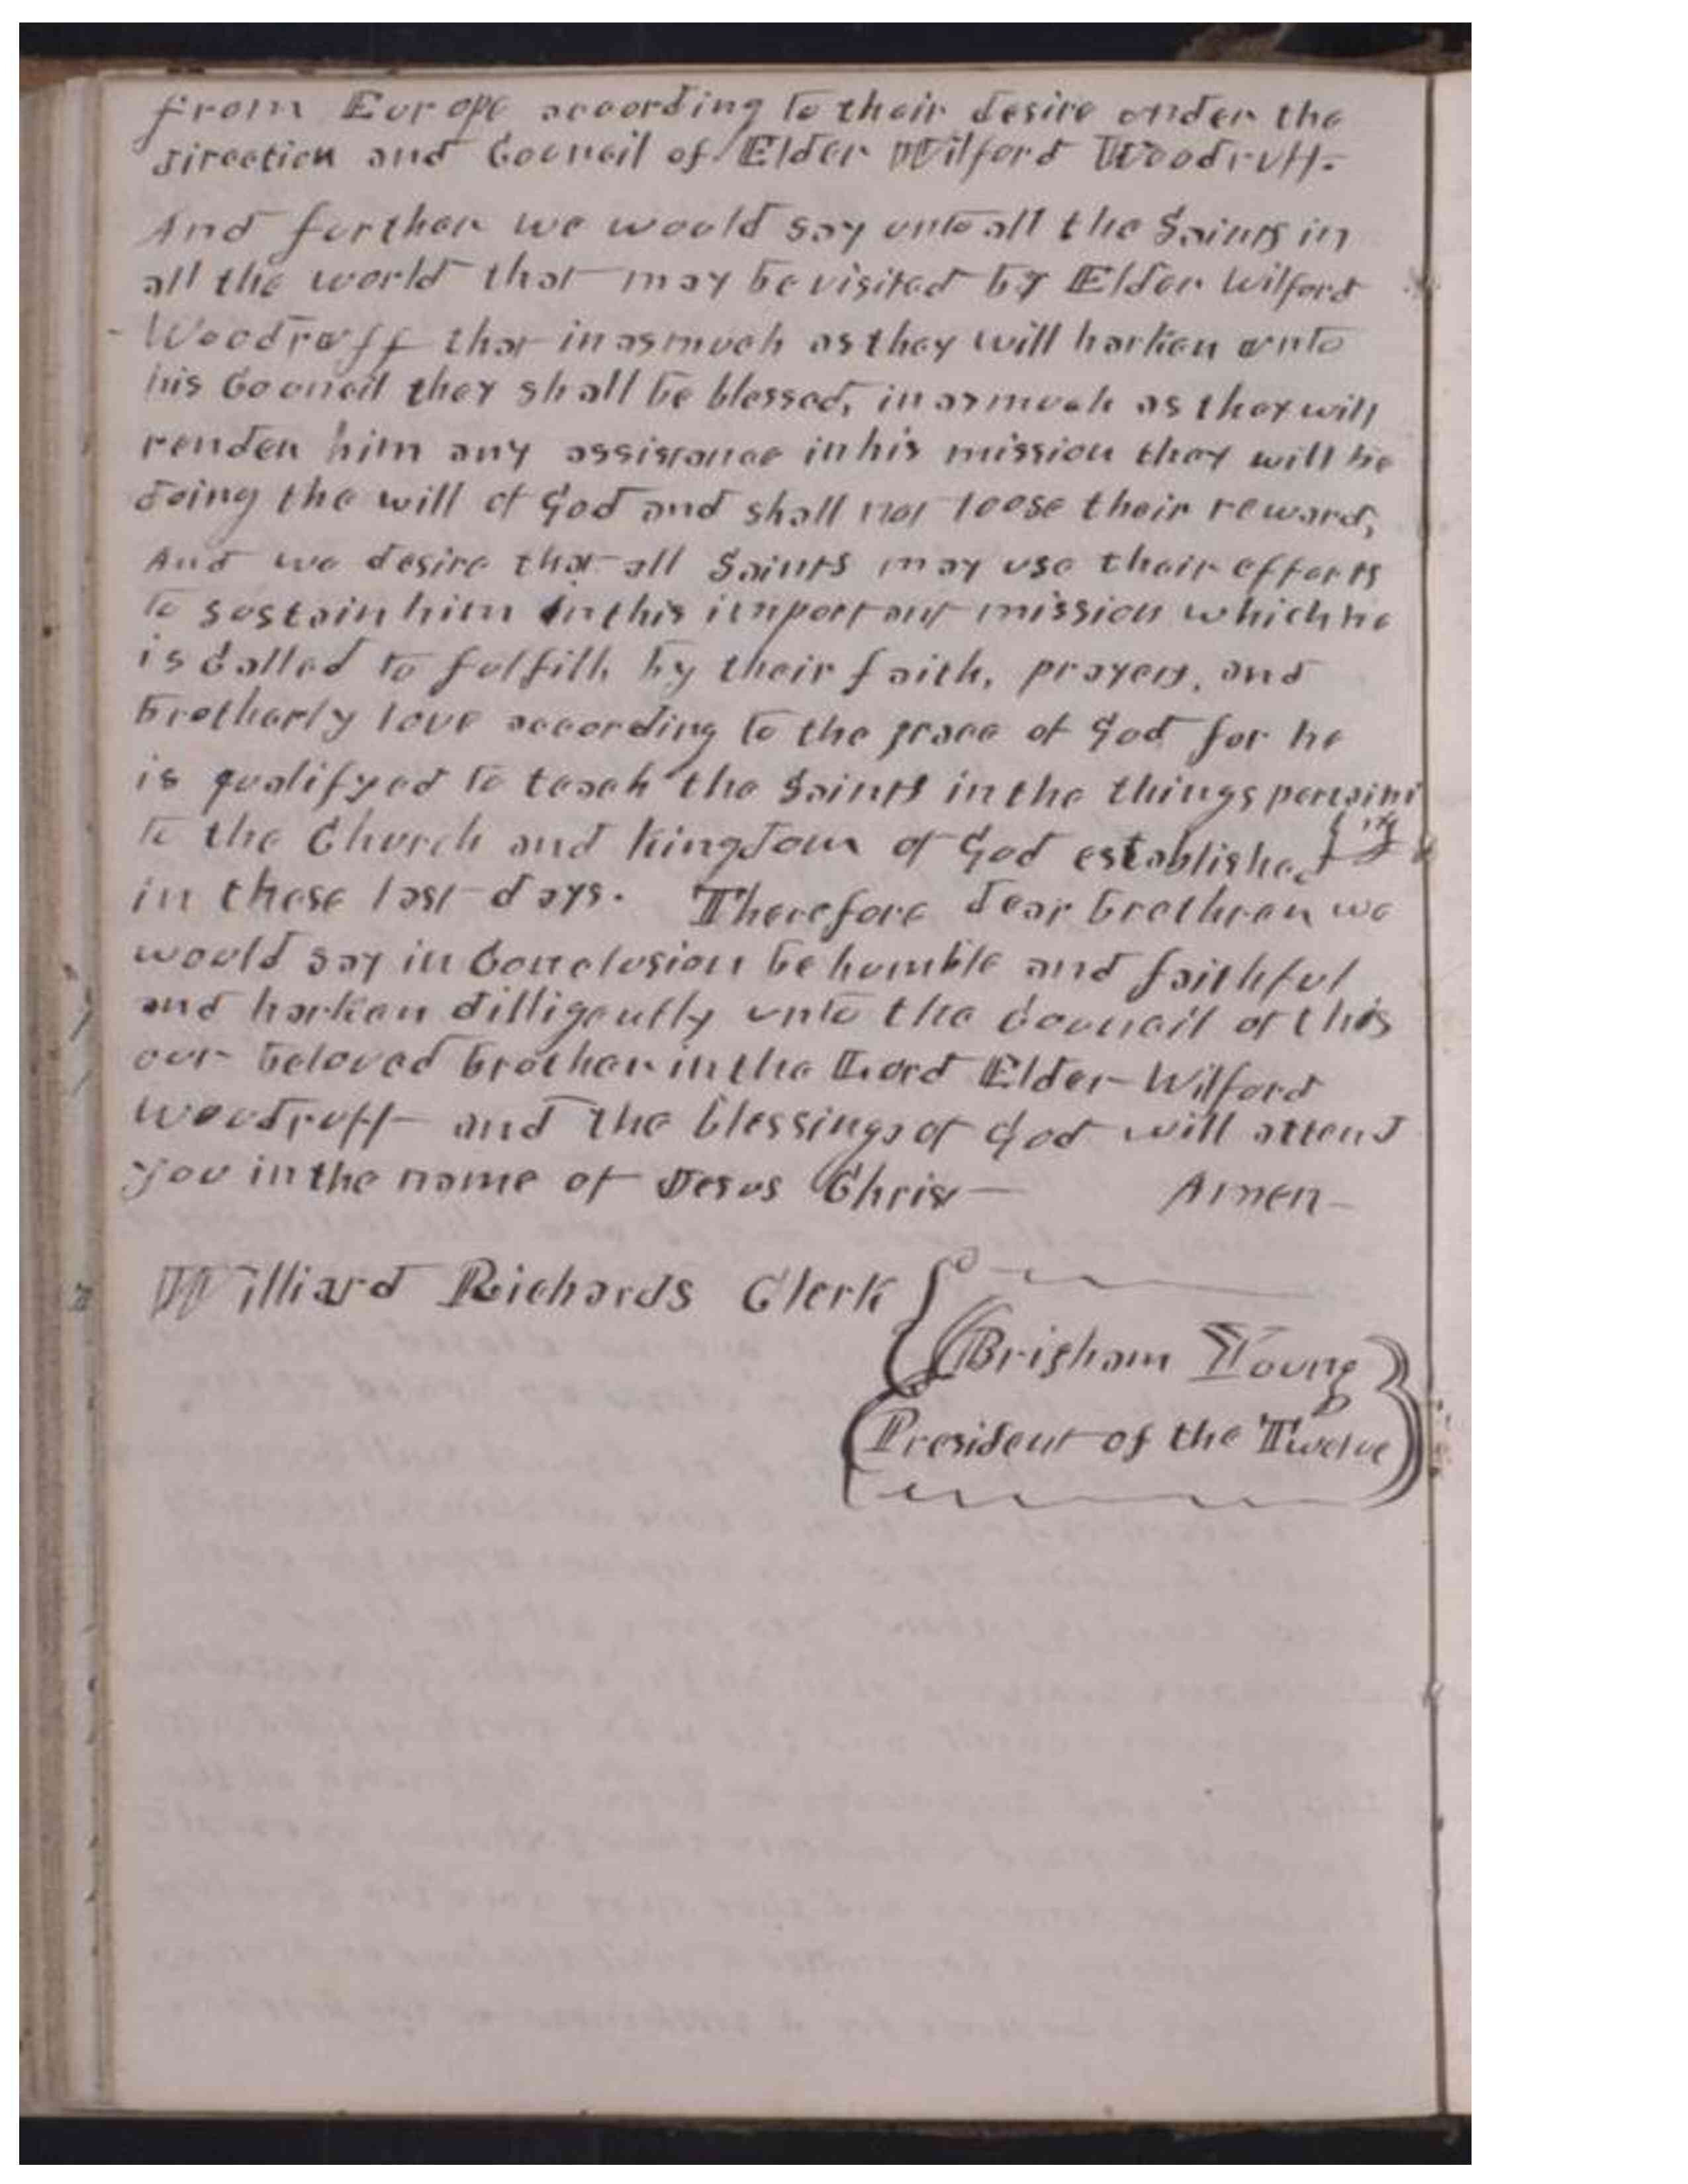 from Europe according to their desire under the
direction and Council of Elder Wilford Woodruff.
And further we would say unto all the Saints in
all the world that may be visited by Elder Wilford
Woodruff that inasmuch as they will harken unto
his Council they shall be blessed, inasmuch as they will
render him any assistance in his mission they will be
doing the will of God and shall not loose their reward,
And we desire that all Saints may use their efforts
to sustain him in this important mission which he
is Called to fulfill, by their faith, prayers, and
brotherly love according to the grace of God for he
is qualifyed to teach the Saints in the things pertaini
ng
to the Church and kingdom of God established
in these last days. Therefore dear brethren we
would say in Conclusion be humble and faithful
and harken dilligently unto the Council of this
our beloved brother in the Lord Elder Wilford
Woodruff and the blessings of God will attend
you in the name of Jesus Christ Amen
Williard Richards Clerk
Brigham Young
President of the Twelve